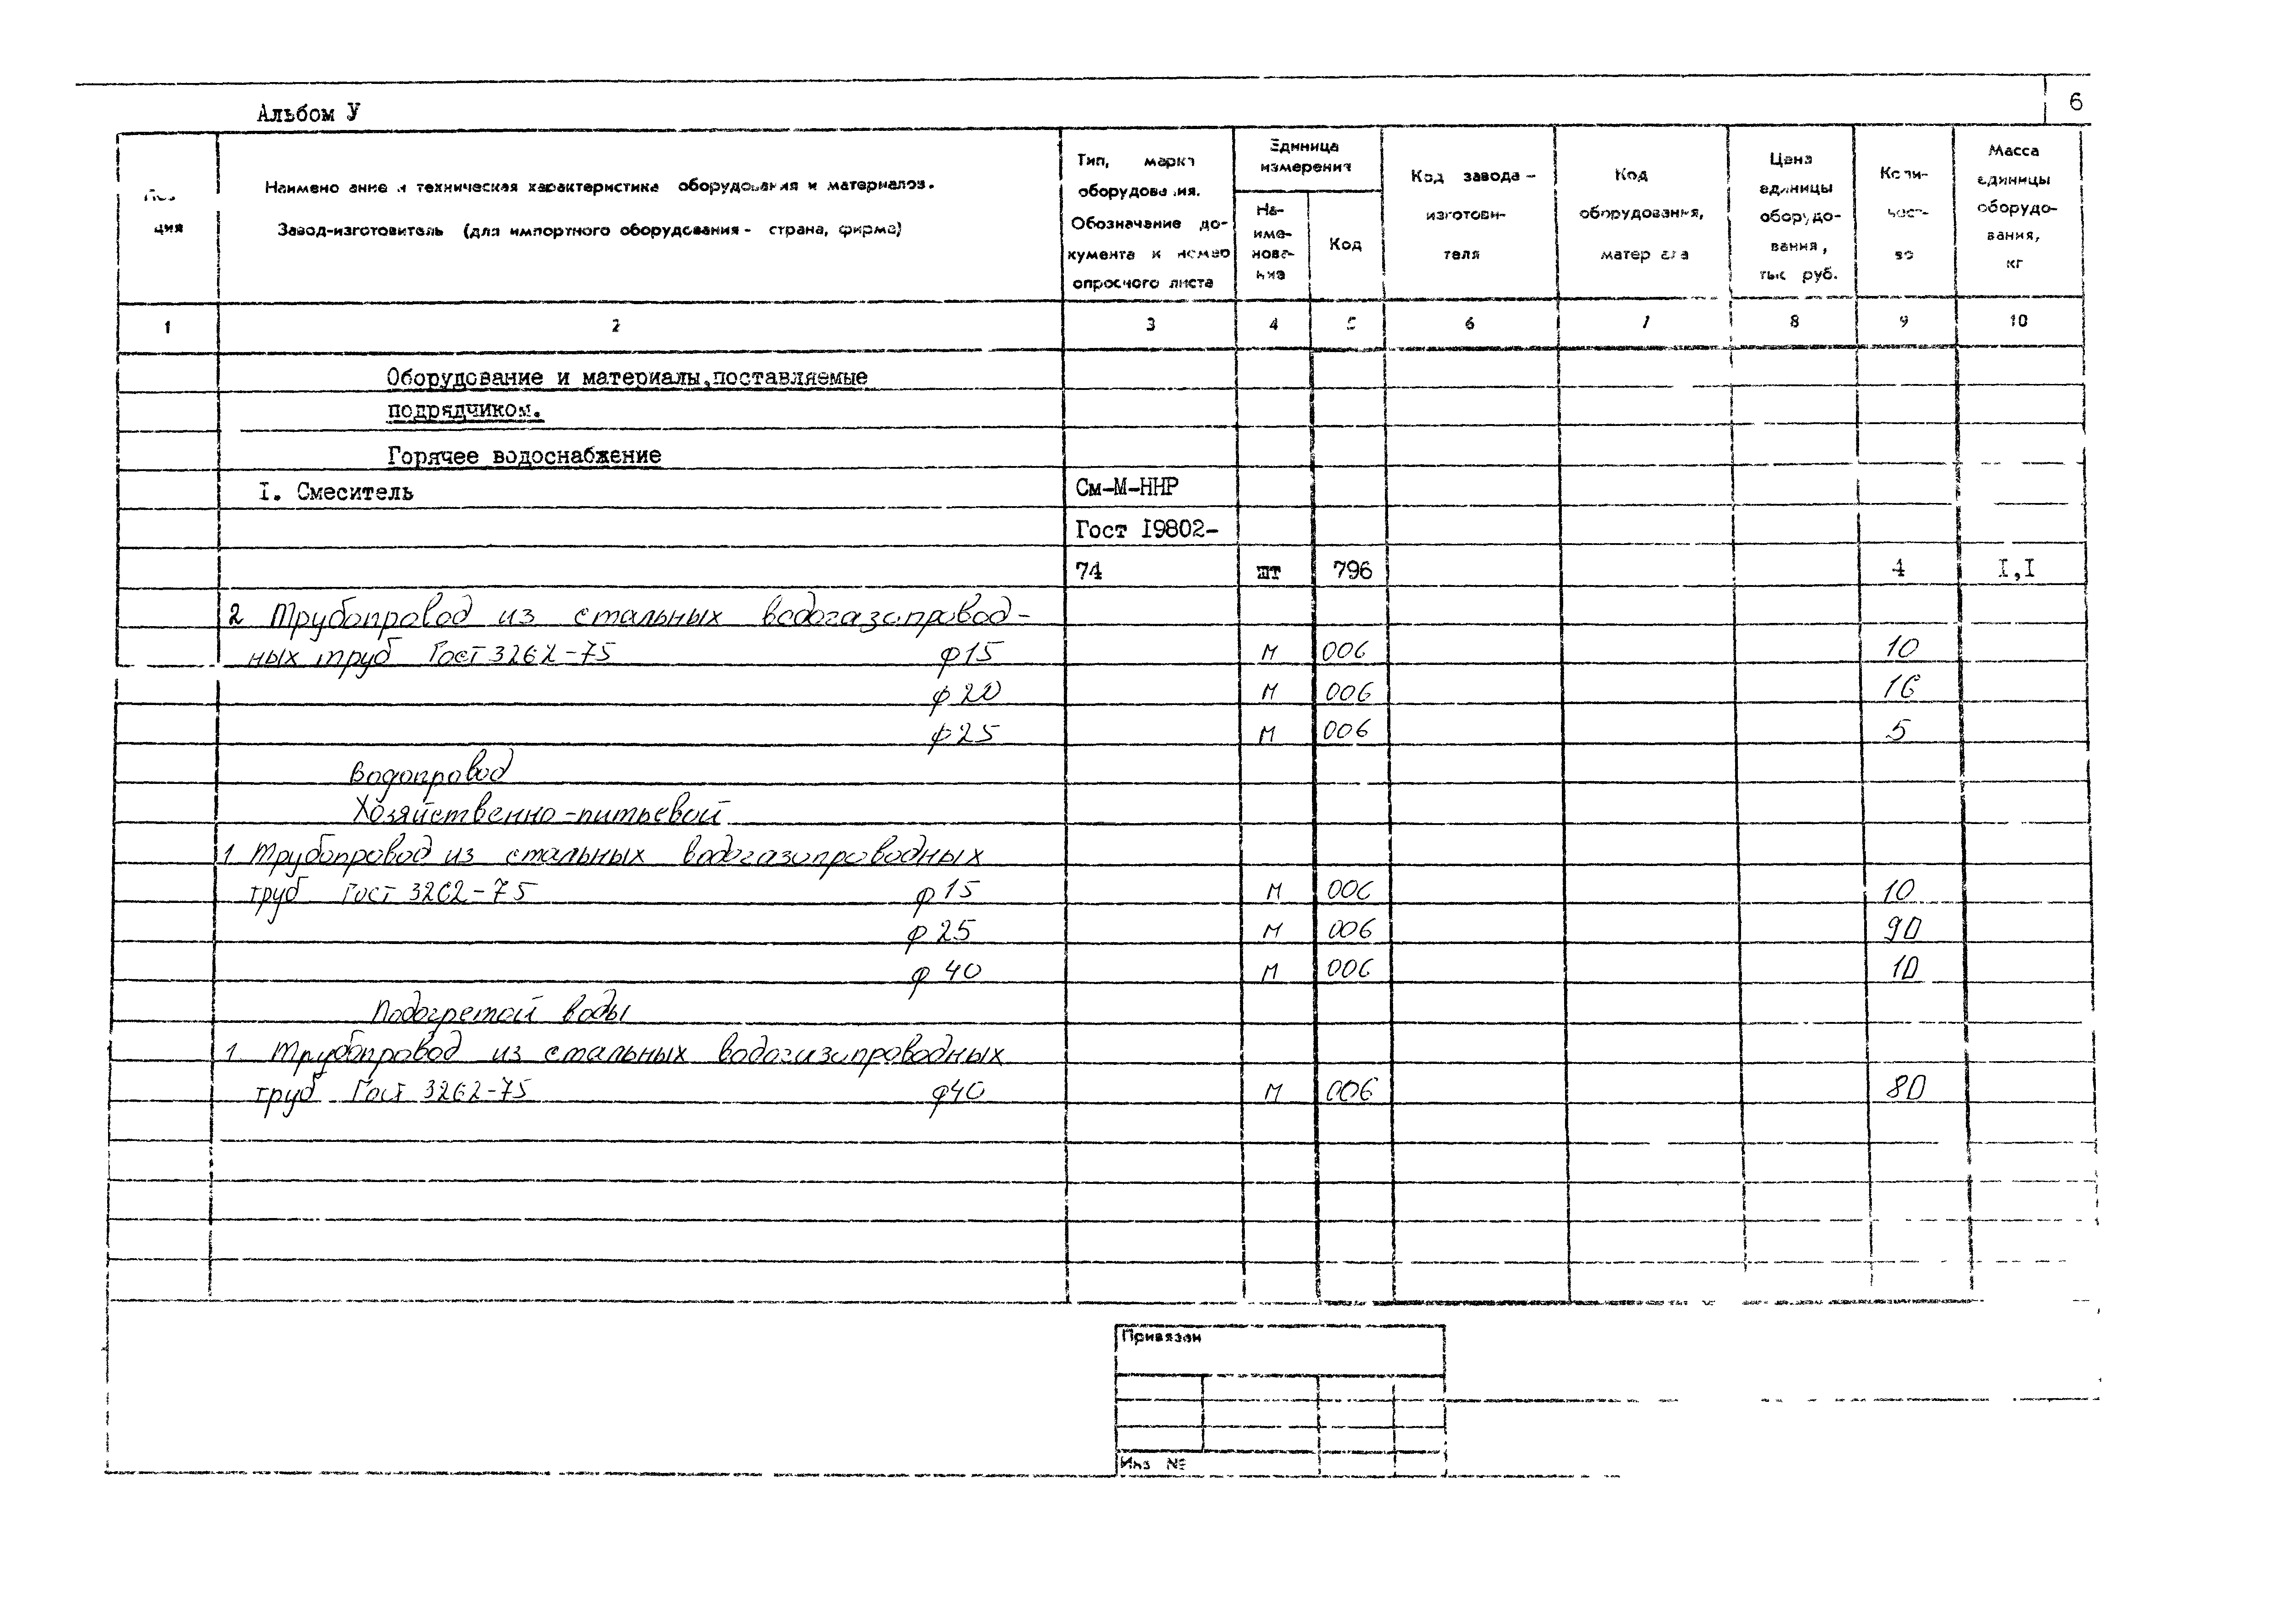 Альбом У
6
ция
Наимено ание и техническая характеристика оборудования и материалов.
Завод-изготовитель (для импортного оборудования - страна, фирма)
Тип, марка
оборудова ия.
Обозначение до-
кумента и номер
опросного листа
Единица
измерения
На-
име-
нова-
ние
Код
Код завода-
изготови-
теля
Код
оборудования,
матер ала
Цена
единицы
оборудо-
вания,
тыс руб.
Коли-
чест-
во
Масса
единицы
оборудо-
вания,
кг
1 2 3 4 5 6 7 8 9 10
Оборудование и материалы,поставляемые
подрядчиком.
Горячее водоснабжение
I. Смеситель См-М-ННР
Гост I9802-
74 шт 796 4 I,I
2 Трубопровод из стальных водогазопровод-
ных труб Гост 3262-75 ф15 м 006 10
ф20 м 006 16
ф25 м 006 5
Водопровод
Хозяйственно-питьевой
1 Трубопровод из стальных водогазопроводных
труб Гост 3262-75 ф15 м 006 10
ф25 м 006 90
ф40 м 006 10
Подогретой воды
1 Трубопровод из стальных водогазопроводных
труб Гост 3262-75 ф40 м 006 80
Привязан
Инв №